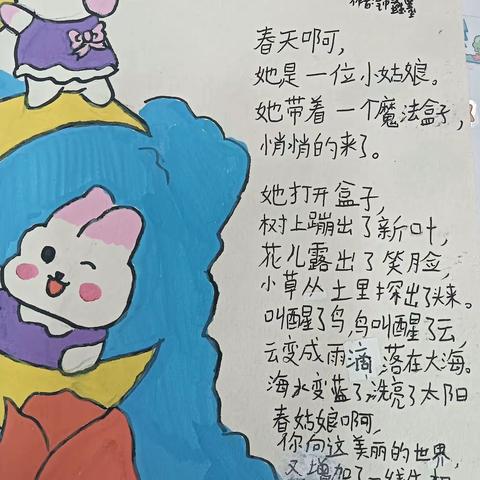 春天啊,
她是一位小姑娘。
她带着一个魔法盒子,
悄悄的来了。
她打开盒子,
树上蹦出了新叶,
花儿露出了笑脸,
小草从土里探出了头来。
叫醒了鸟,鸟叫醒了云,
云变成雨滴落在大海。
海水变蓝了,洗亮了太阳
春姑娘啊,
你向这美丽的世界,
又增加了一线生机